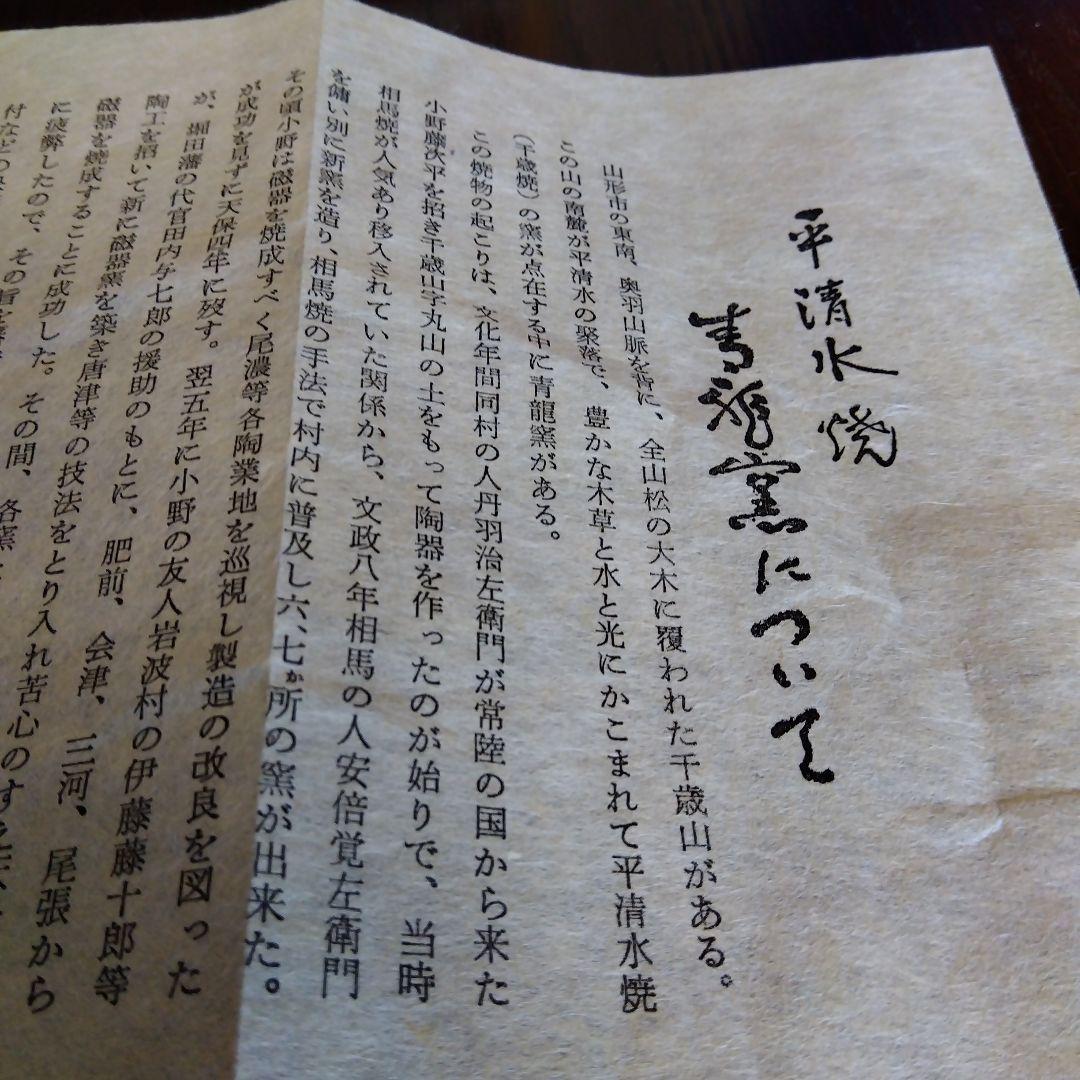 平清水焼
青龍窯について
山形市の東南、奥羽山脈を背に、全山松の大木に覆われた千歳山がある。
この山の南麓が平清水の聚落で、豊かな木草と水と光にかこまれて平清水焼
(千歳焼)の窯が点在する中に青龍窯がある。
この焼物の起こりは、文化年間同村の人丹羽治左衛門が常陸の国から来た
小野藤次平を招き千歳山字丸山の土をもって陶器を作ったのが始りで、当時
相馬焼が人気あり移入されていた関係から、文政八年相馬の人安倍覚左衛門
を傭い別に新窯を造り、相馬焼の手法で村内に普及し六、七ヵ所の窯が出来た。
その頃小野は磁器を焼成すべく尾濃等各陶業地を巡視し製造の改良を図った
が成功を見ずに天保四年に歿す。翌五年に小野の友人岩波村の伊藤藤十郎等
が、堀田藩の代官田内与七郎の援助のもとに、肥前、会津、三河、尾張から
陶工を招いて新に磁器窯を築き唐津等の技法をとり入れ苦心のす
磁器を焼成することに成功した。その間、各窯
に疲弊したので、その旨を
付など